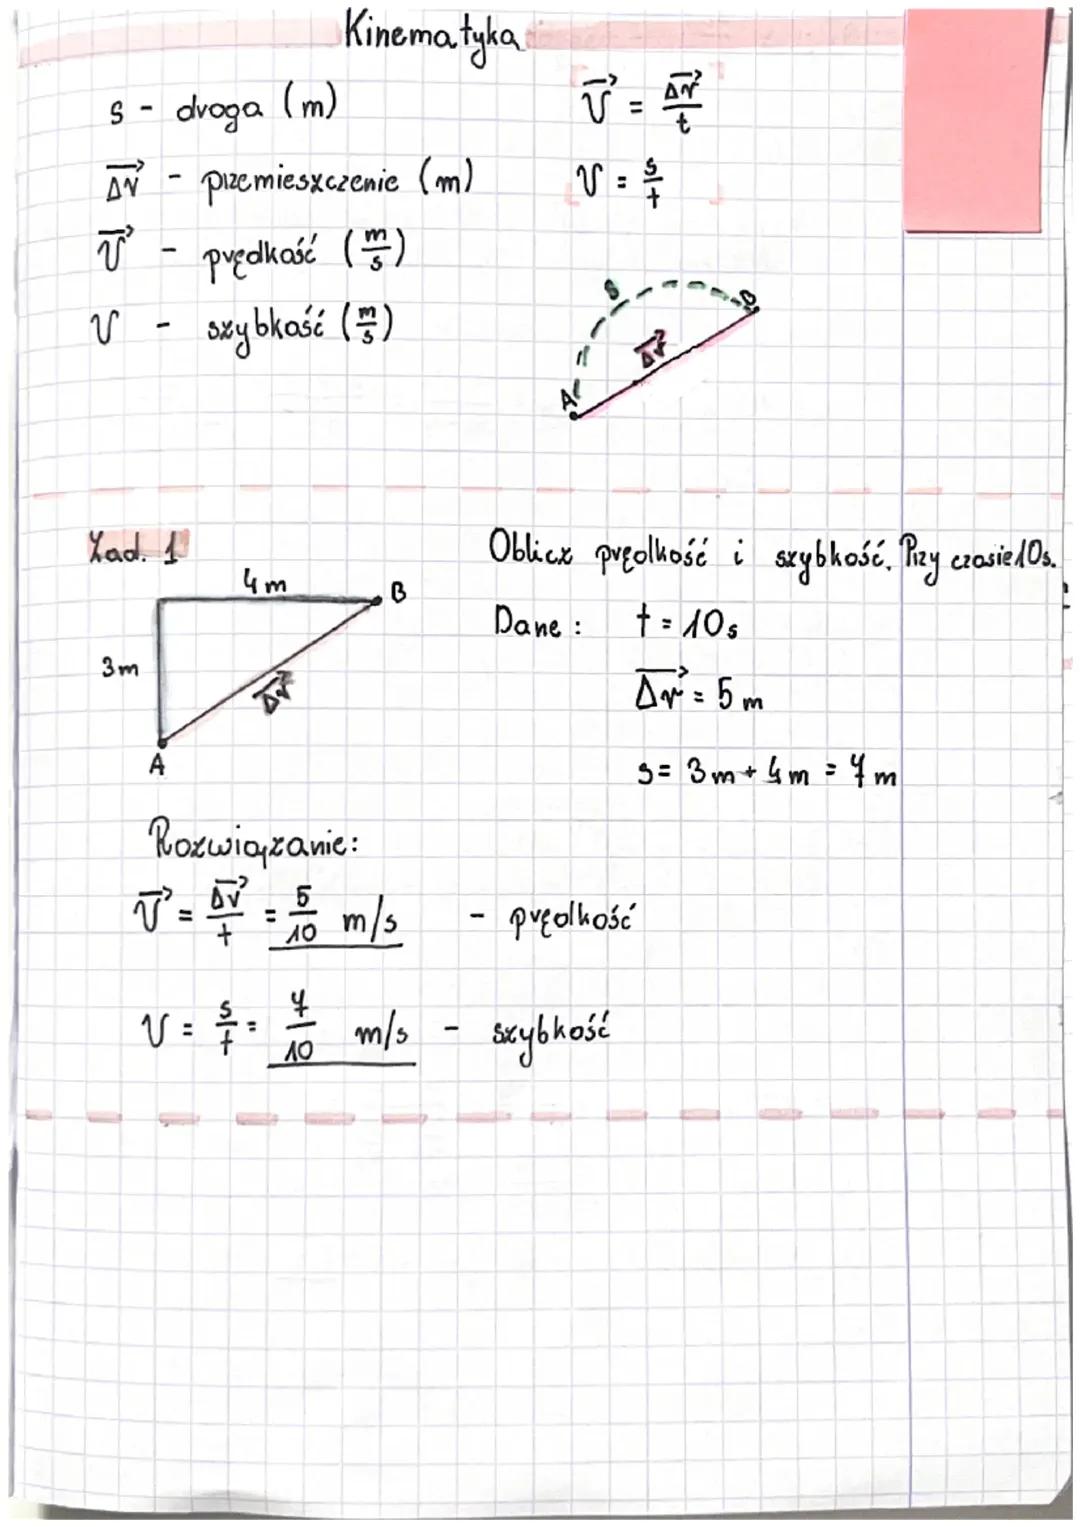 Kinematyka
s - droga (m)
$\vec{v} = \frac{\overrightarrow{\Delta r}}{t}$
$\overrightarrow{\Delta r}$ - przemieszczenie (m)
$v = \frac{s}{t}$
$\vec{v}$ - prędkość ($\frac{m}{s}$)
v - szybkość ($\frac{m}{s}$)
s
B
$\overrightarrow{\Delta r}$
A
Zad. 1
Oblicz prędkość i szybkość. Przy czasie 10s.
4m
B
Dane: t = 10s
3m
$\overrightarrow{\Delta r}$ = 5 m
$\overrightarrow{\Delta r}$
A
s = 3m + 4m = 7m
Rozwiązanie:
$\vec{v} = \frac{\overrightarrow{\Delta r}}{t} = \frac{5}{10}$ m/s - prędkość
$v = \frac{s}{t} = \frac{7}{10}$ m/s - szybkość